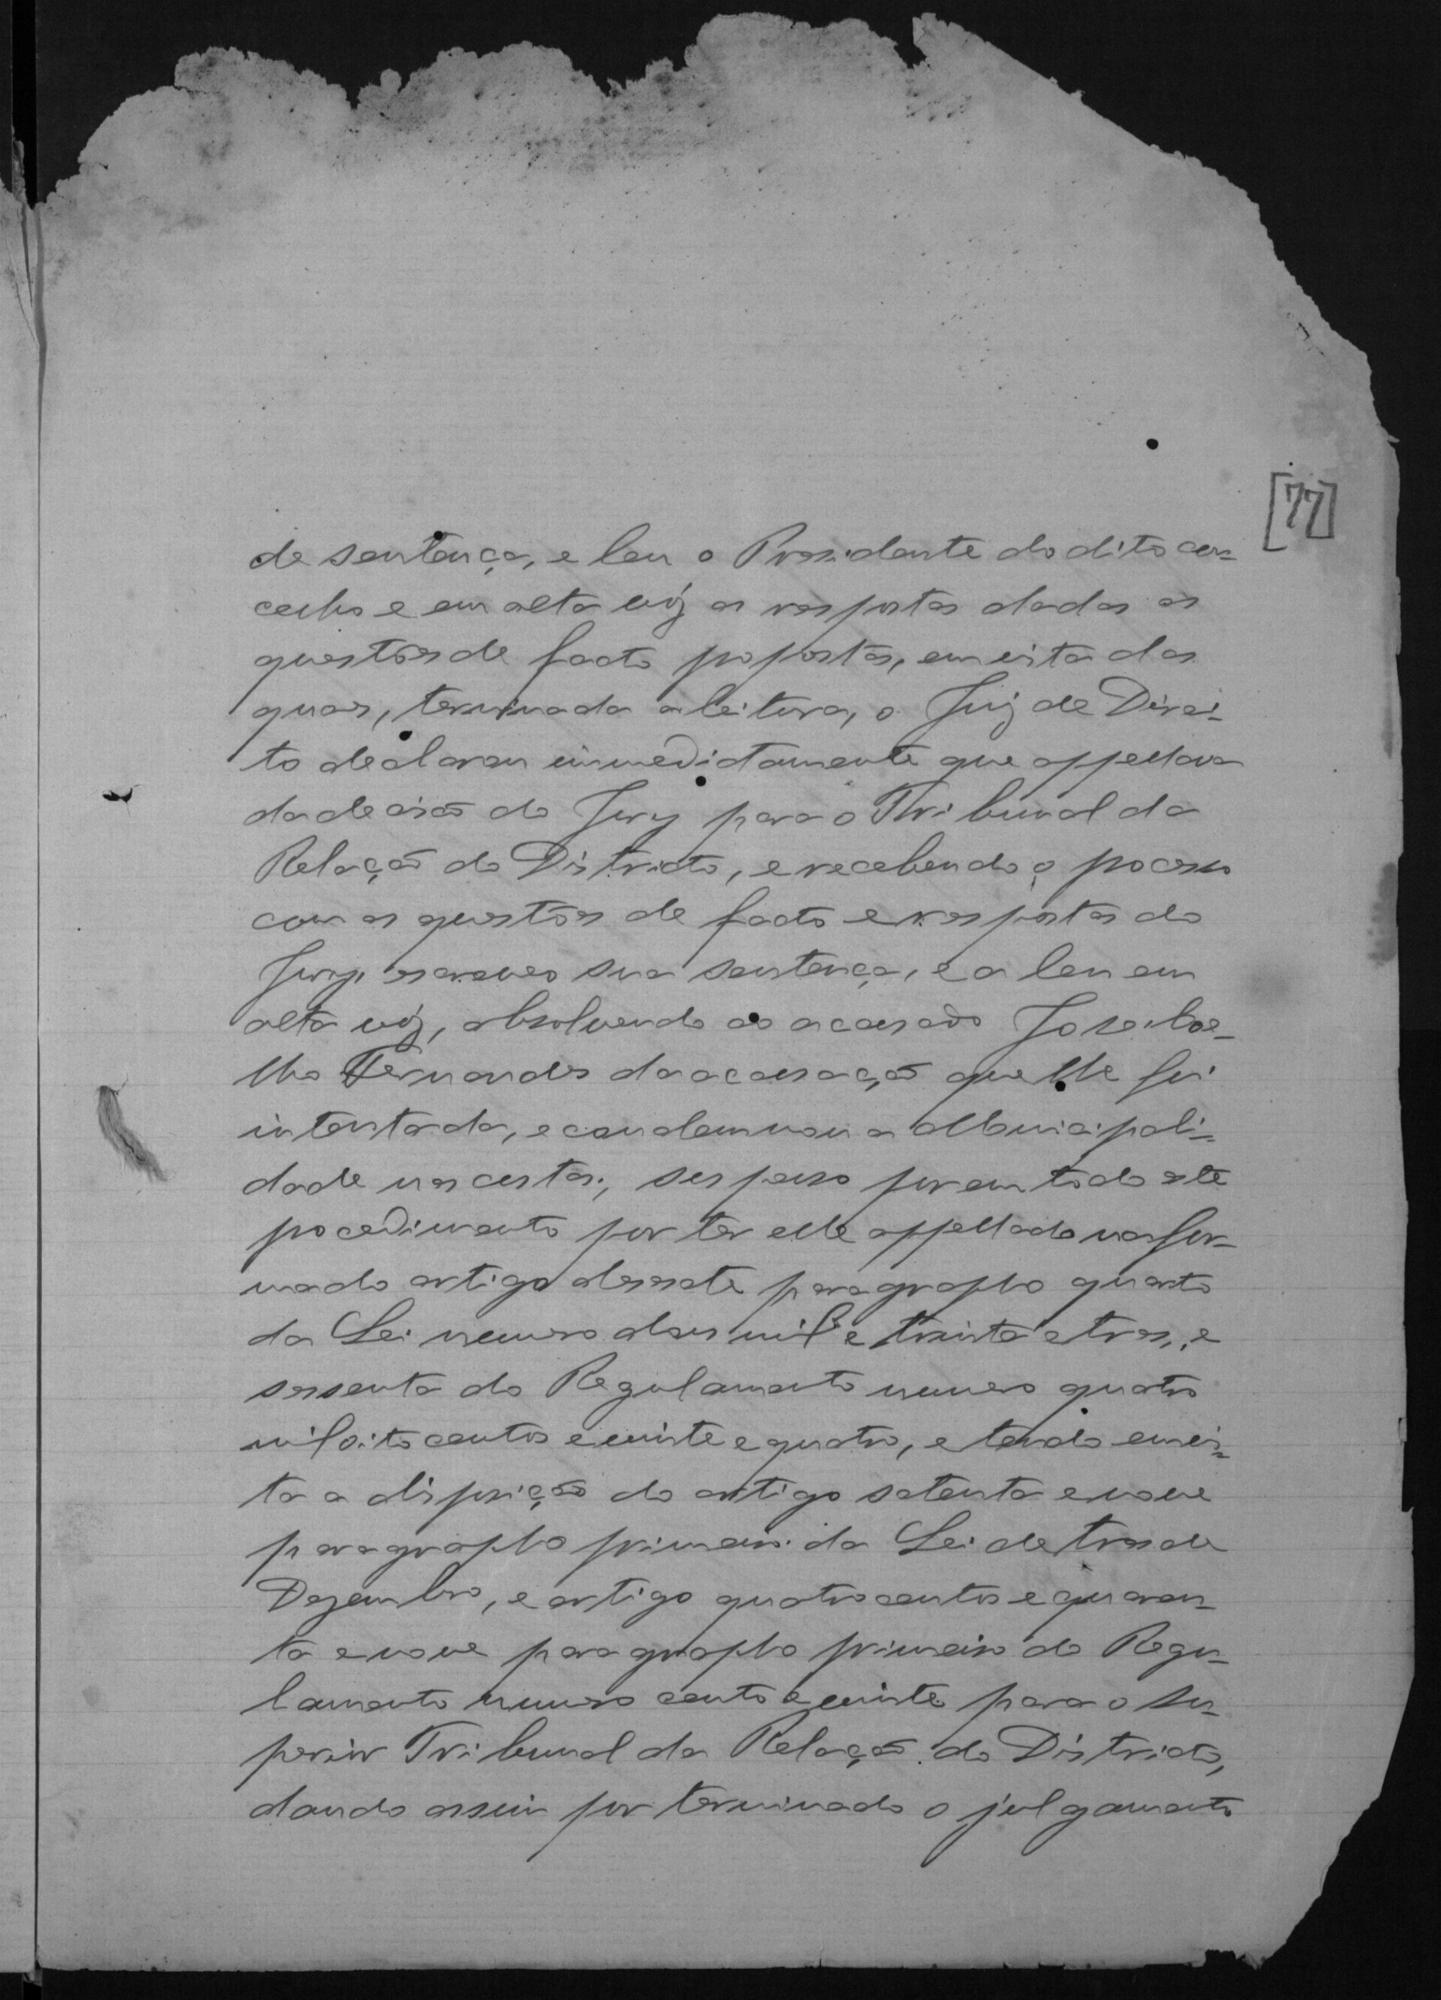 [77]
de sentença, e leu o Presidente do dito con-
celho e em alta vóz as respostas dadas as
questões de facto propostas, em vista das
quaes, terminada a leitura, o Juiz de Direi-
to declarou immediatamente que appellava
da decisão do Jury para o Tribunal da
Relação do Districto, e recebendo o processo
com as questões de facto e respostas do
Jury, escreveo sua sentença, e a leu em
alta vóz, absolvendo ao accusado José Coe-
lho Fernandes da accusação que lhe foi
intentada, e condemnou a Municipali-
dade nas custas; suspenso porem todo este
procedimento por ter elle appellado na for-
ma do artigo desesete paragrapho quarto
da Lei numero dous mil e trinta e tres, e
sessenta do Regulamento numero quatro
mil oito centos e vinte e quatro, e tendo em vis-
ta a disposição do artigo setenta e nove
paragrapho primeiro da Lei de tres de
Dezembro, e artigo quatro centos e quaren-
ta e nove paragrapho primeiro do Regu-
lamento numero cento e vinte para o su-
perior Tribunal da Relação do Districto,
dando assim por terminado o julgamento